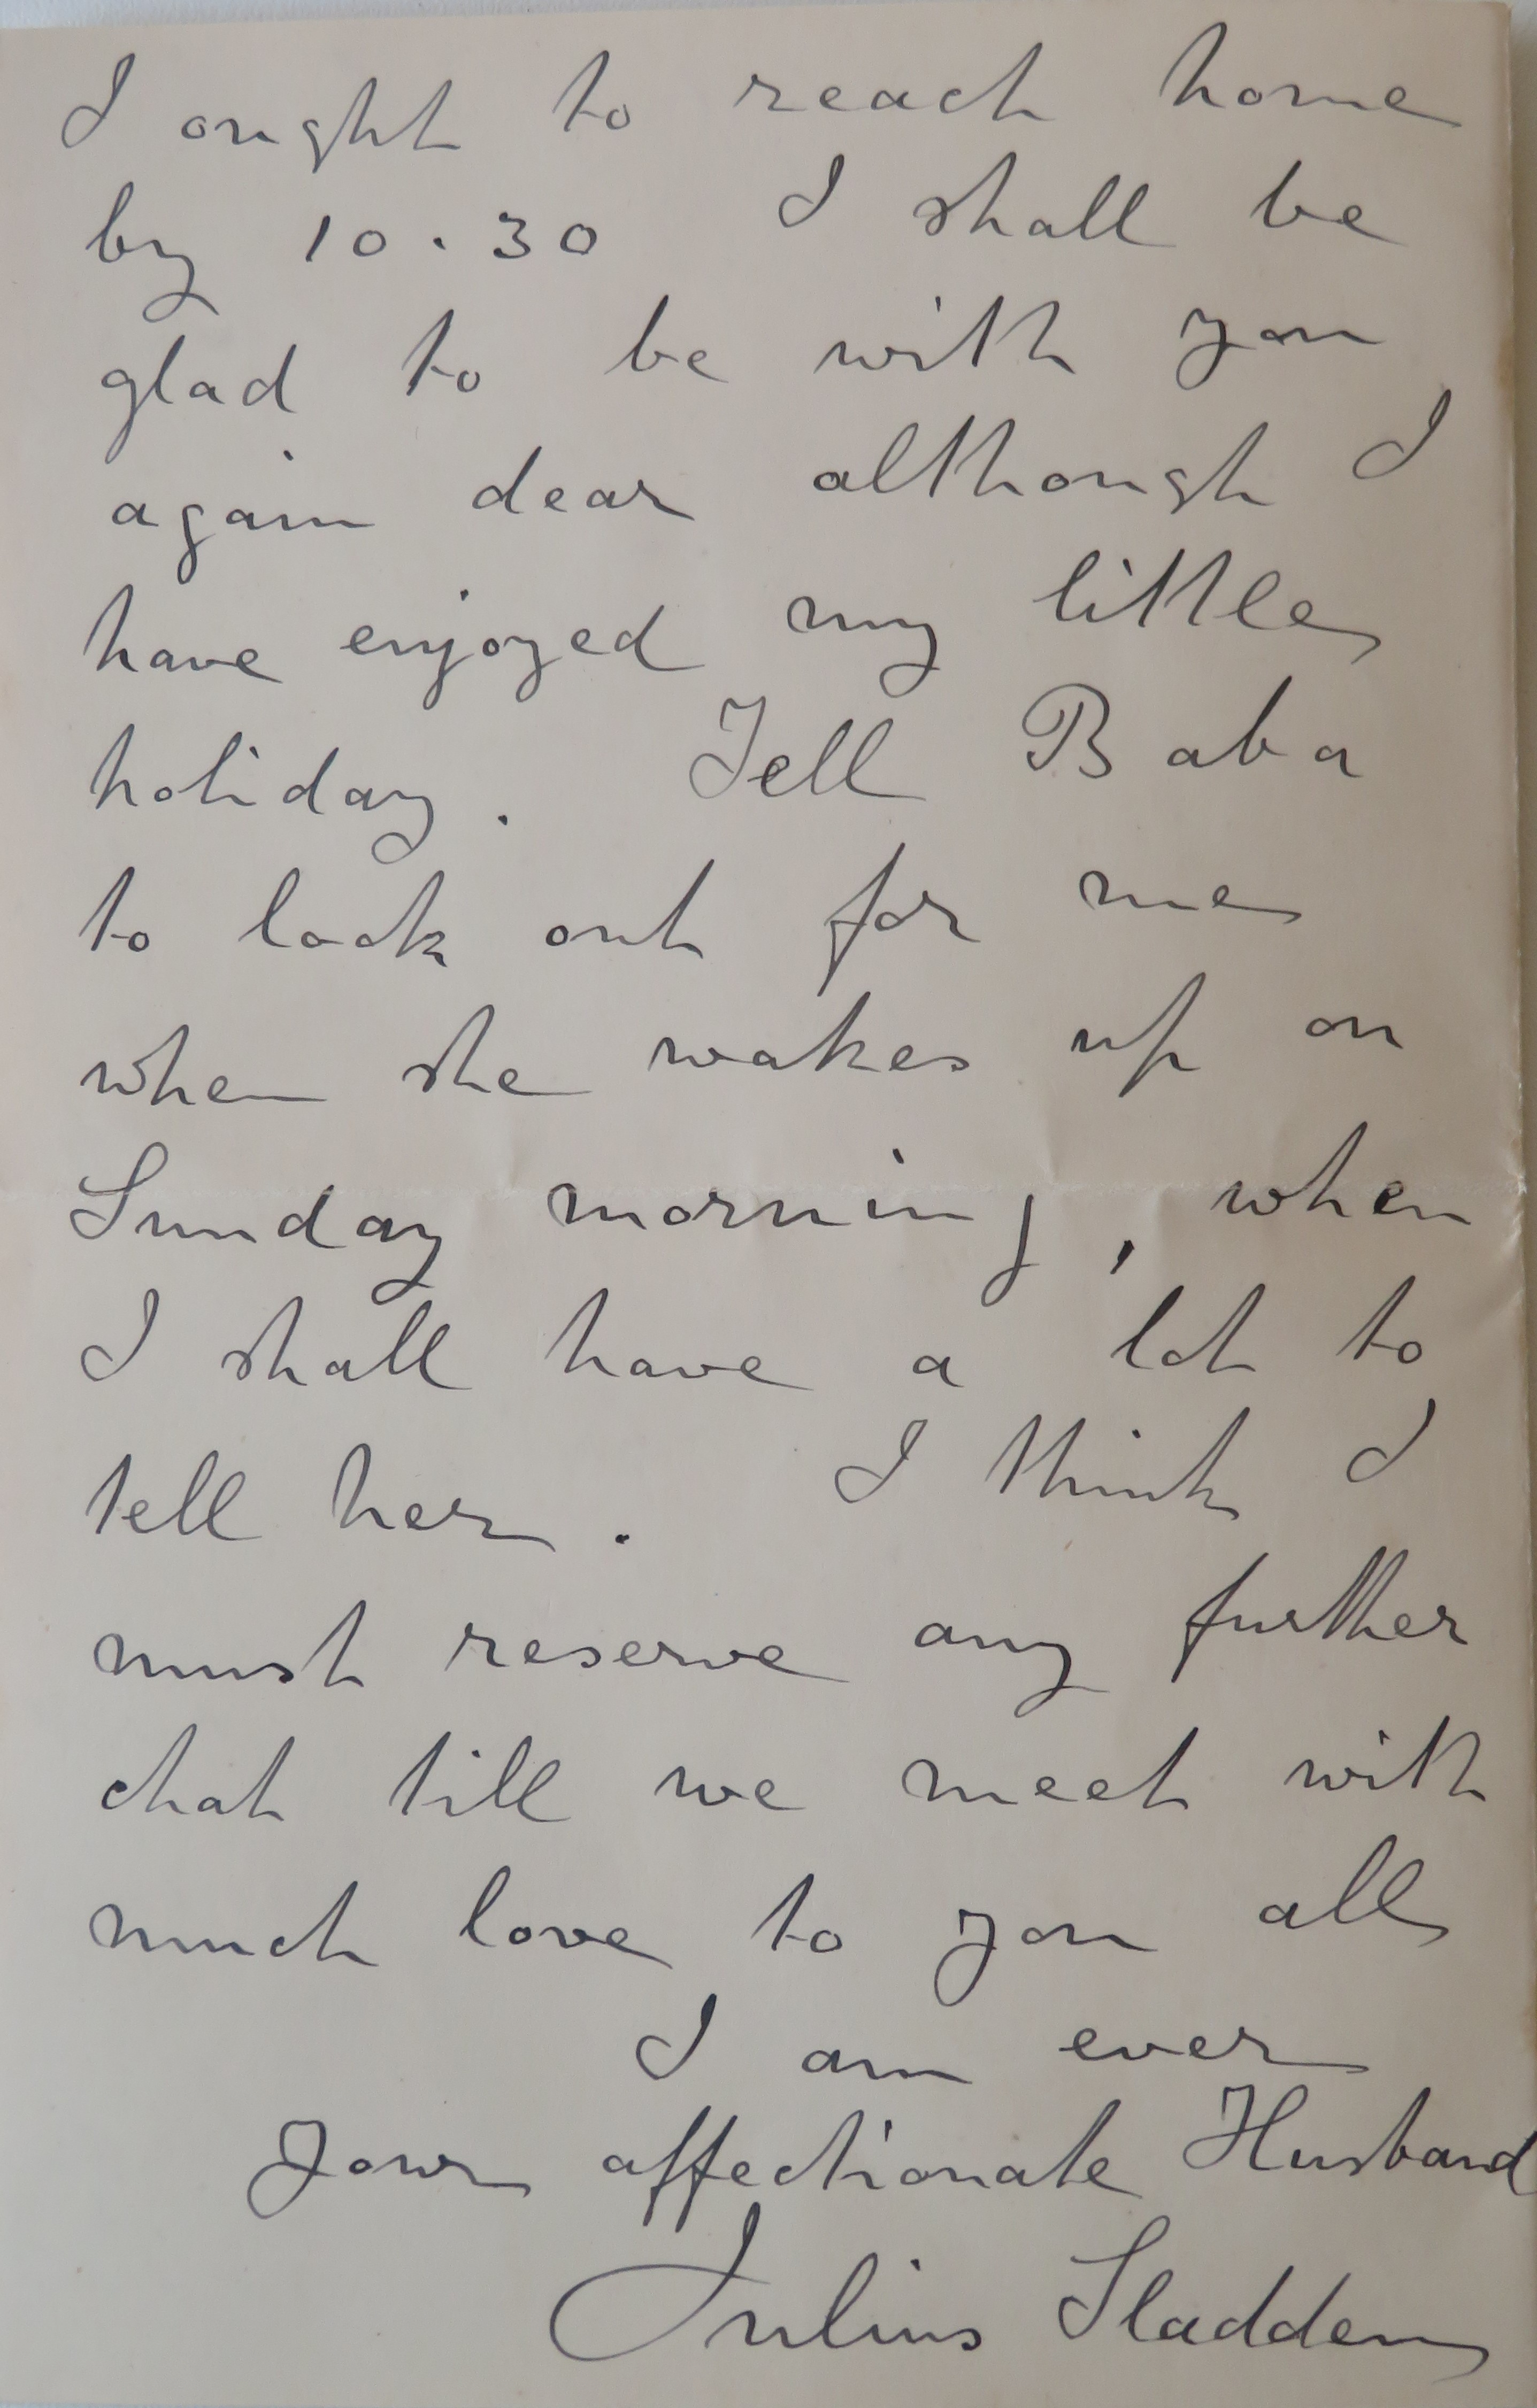 I ought to reach home
by 10.30 I shall be
glad to be with you
again dear although I
have enjoyed my little
holiday. Tell Baba
to look out for me
when she wakes up on
Sunday morning, when
I shall have a lot to
tell her. I think I
must reserve any further
chat till we meet with
much love to you all
I am ever
Your affectionate Husband
Julius Sladden